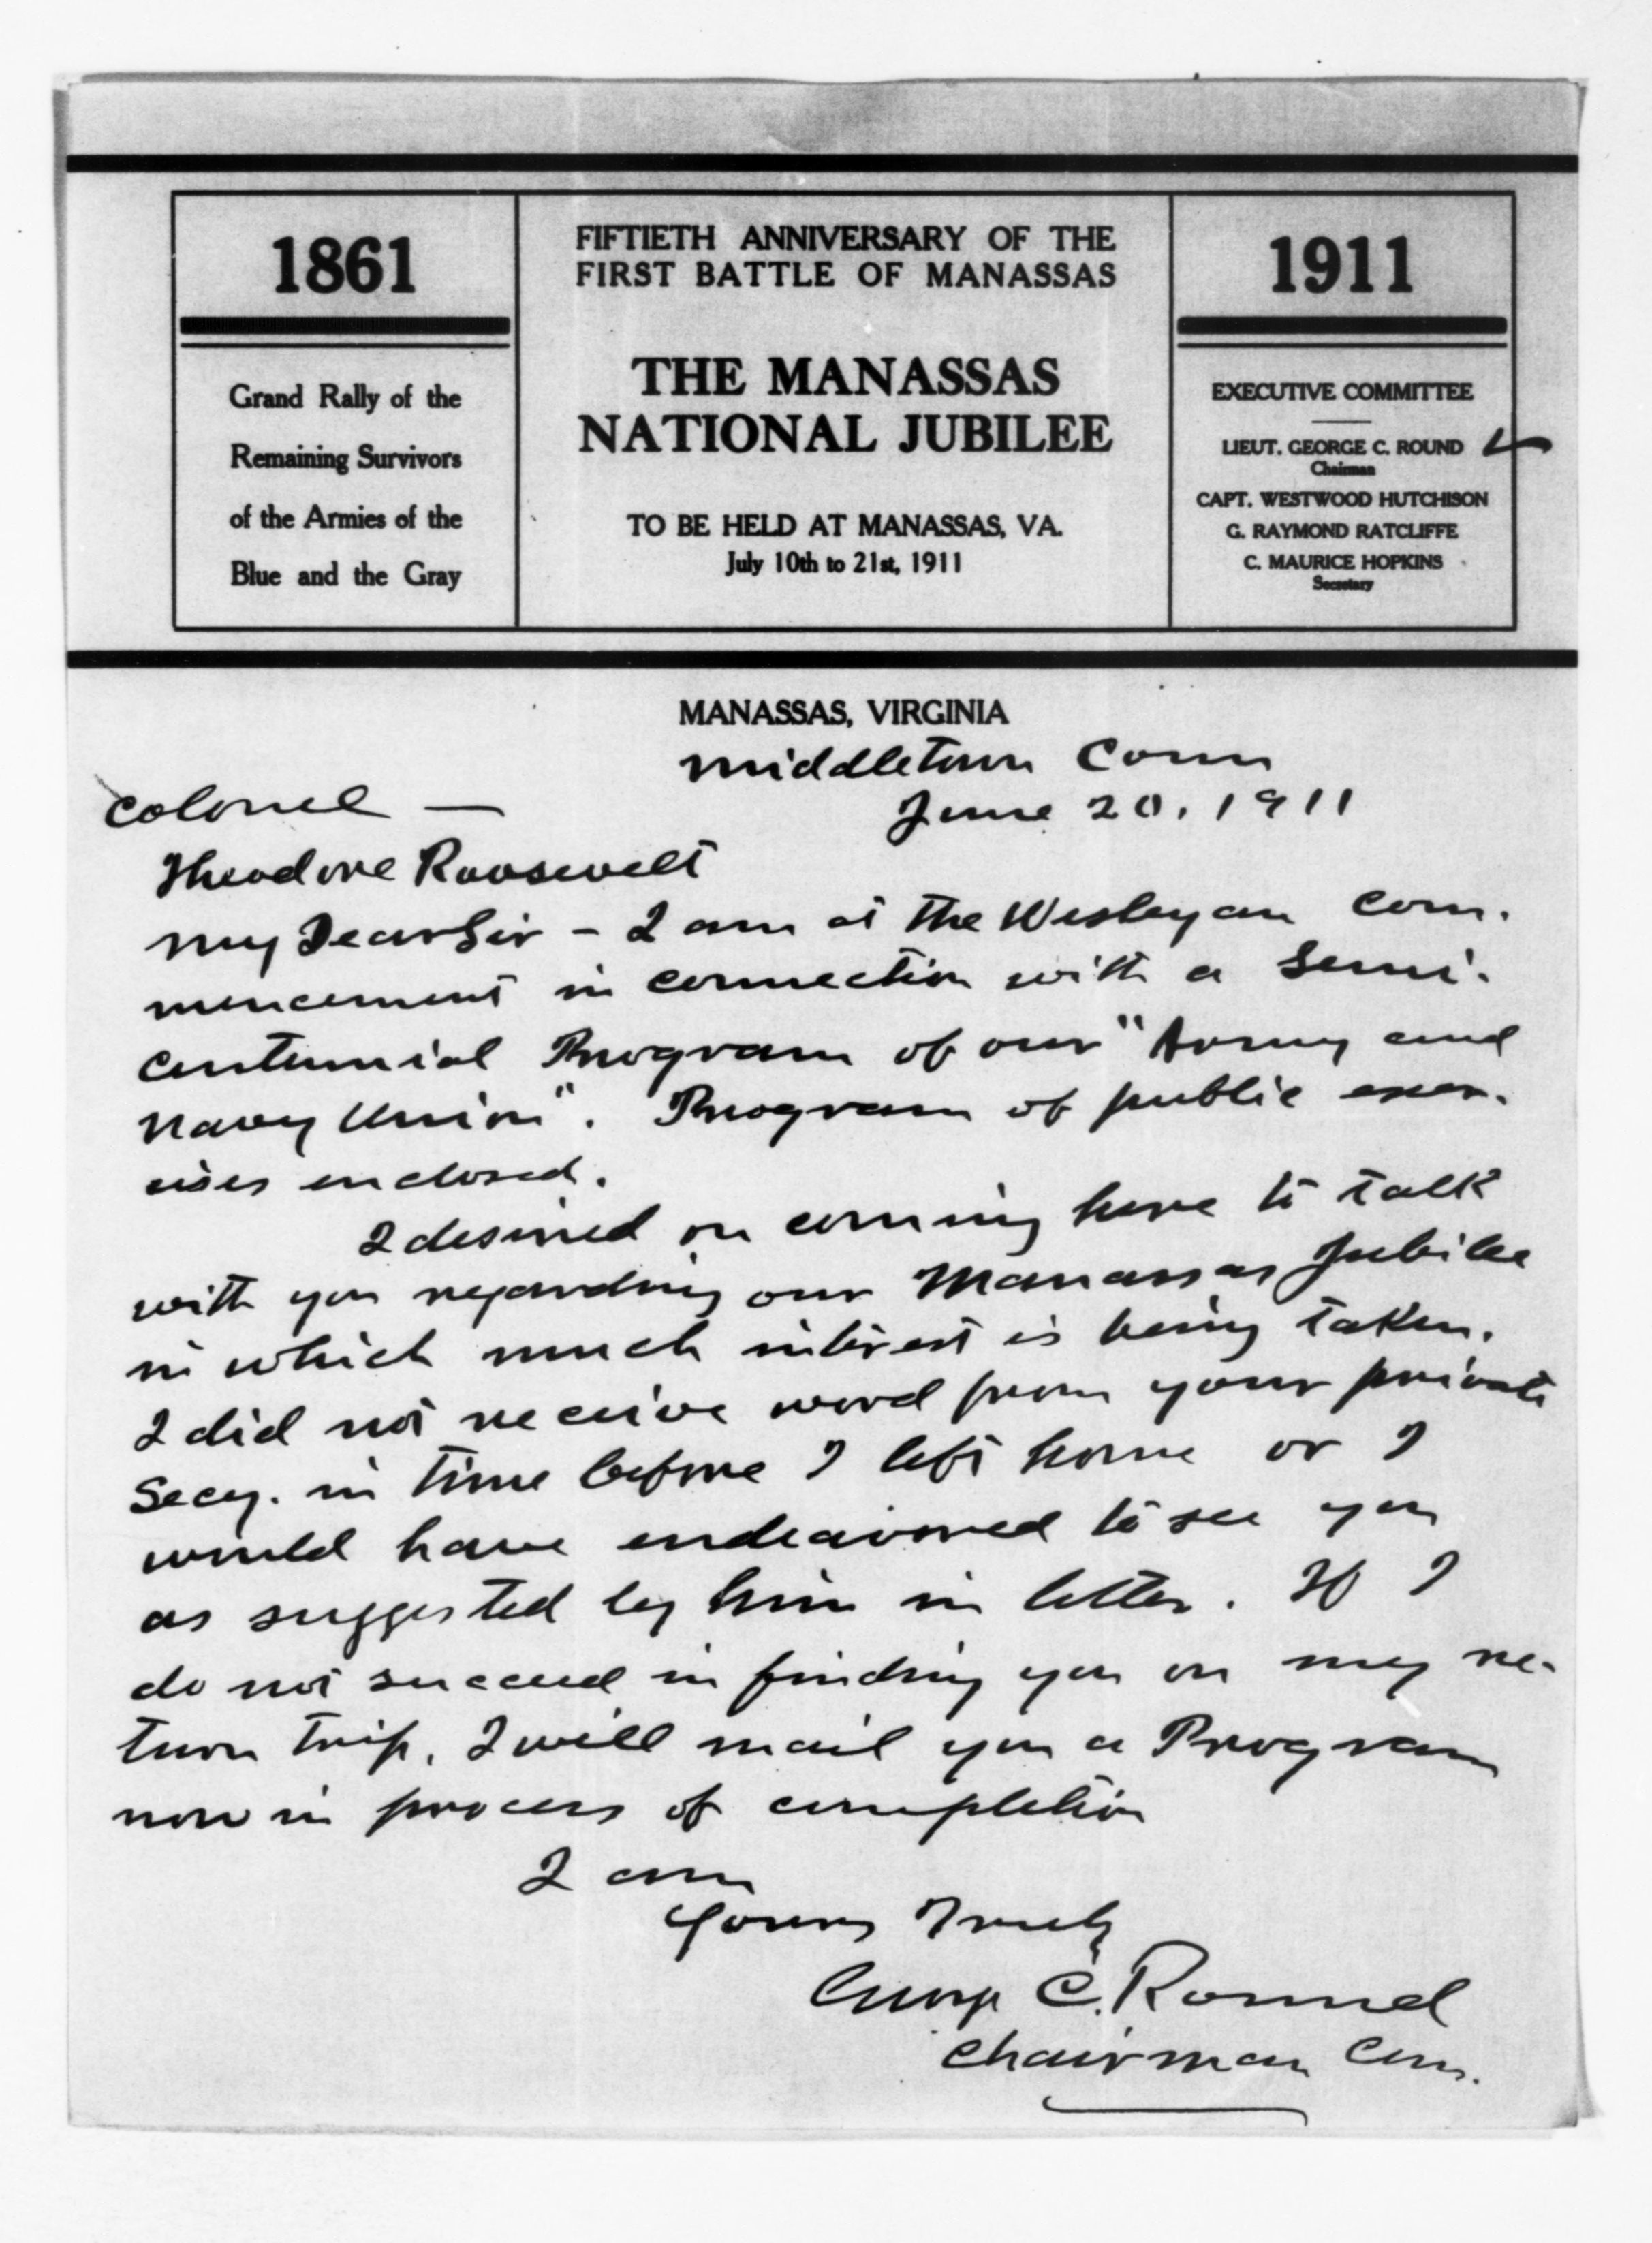 1861
Grand Rally of the
Remaining Survivors
of the Armies of the
Blue and the Gray
FIFTIETH ANNIVERSARY OF THE
FIRST BATTLE OF MANASSAS
THE MANASSAS
NATIONAL JUBILEE
TO BE HELD AT MANASSAS, VA.
July 10th to 21st, 1911
1911
EXECUTIVE COMMITTEE
LIEUT. GEORGE C. ROUND
Chairman
CAPT. WESTWOOD HUTCHISON
G. RAYMOND RATCLIFFE
C. MAURICE HOPKINS
Secretary
MANASSAS, VIRGINIA
Middletown Conn
June 20, 1911
Colonel —
Theodore Roosevelt
My Dear Sir - I am at the Wesleyan Com-
mencement in connection with a Semi-
Centennial Program of our "Army and
Navy Union". Program of public exer-
cises enclosed.
I desired on coming here to talk
with you regarding our Manassas Jubilee
in which much interest is being taken.
I did not receive word from your private
Secy. in time before I left home or I
would have endeavored to see you
as suggested by him in letter. If I
do not succeed in finding you on my re-
turn trip, I will mail you a Program
now in process of completion
I am
Yours Truly
George C. Round
Chairman Com.